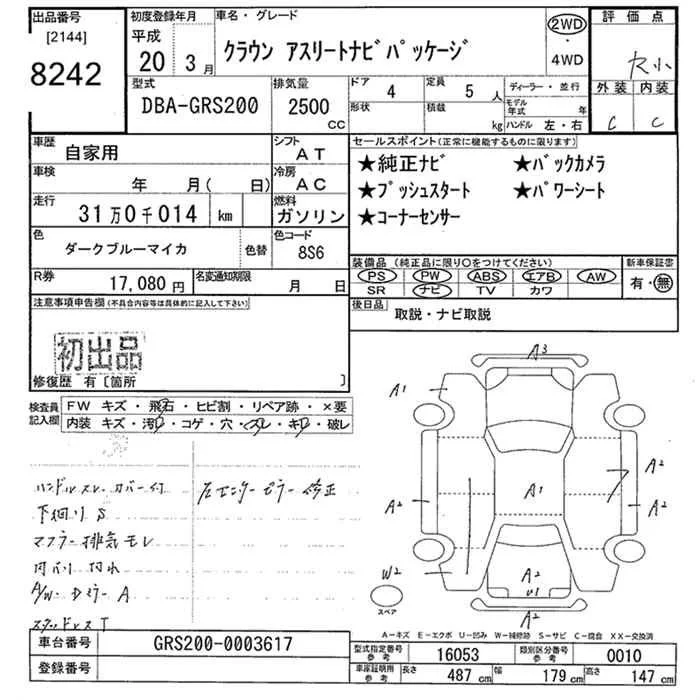 出品番号
[2144]
8242
初度登録年月
平成
20年 3月
車名・グレード
クラウン アスリートナビパッケージ
2WD
・
4WD
評価点
外装 内装
C C
型式
DBA-GRS200
排気量
2500
CC
ドア
4
定員
5人
形状
積載
kg
ディーラー・並行
モデル年式 年
ハンドル 左・右
車歴
自家用
シフト
AT
車検
年 月( 日)
冷房
AC
走行
31万0千014 km
燃料
ガソリン
色
ダークブルーマイカ
色替
色コード
8S6
R券
17,080円
名変通知期限
月 日
セールスポイント(正常に機能するものに限ります)
★純正ナビ ★バックカメラ
★プッシュスタート ★パワーシート
★コーナーセンサー
装備品 (純正品に限り○をつけてください)
PS PW ABS エアB AW
SR ナビ TV カワ
新車保証書
有・無
後日品
取説・ナビ取説
注意事項申告欄(不具合内容等は具体的に記入して下さい)
初出品
修復歴 有〔箇所 〕
検査員記入欄
FW キズ・飛石・ヒビ割・リペア跡・×要
内装 キズ・汚レ・コゲ・穴・スレ・キレ・破レ
ハンドルスレ カバー付 左センターピラー修正
下回りS
マフラー排気モレ
内バリ汚れ
A/W・DミラーA
A3
A1
A2
A2
A2
A1
W2
A2
U1
A2
スペア
A-キズ E-エクボ U-凹み W-補修跡 S-サビ C-腐食 XX-交換済
車台番号
GRS200-0003617
登録番号
型式指定番号 参考
16053
類別区分番号 参考
0010
車家証明用 参考
長さ 487 cm
幅 179 cm
高さ 147 cm